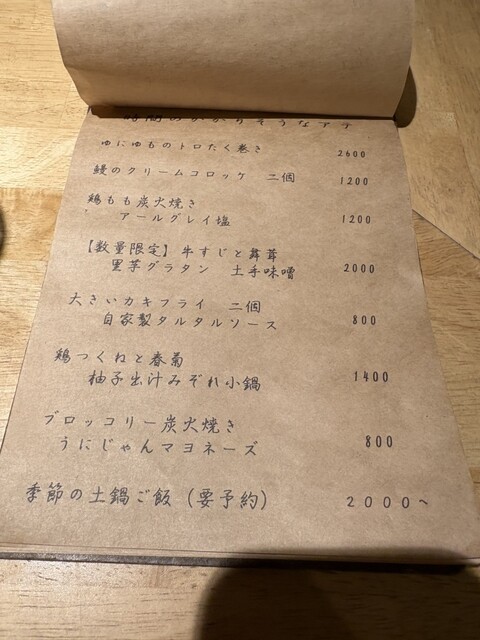 時間のかかりそうなアテ
ゆにゆものトロたく巻き 2600
鰻のクリームコロッケ 二個 1200
鶏もも炭火焼き
アールグレイ塩 1200
【数量限定】牛すじと舞茸
里芋グラタン 土手味噌 2000
大きいカキフライ 二個
自家製タルタルソース 800
鶏つくねと春菊
柚子出汁みぞれ小鍋 1400
ブロッコリー炭火焼き
うにじゃんマヨネーズ 800
季節の土鍋ご飯(要予約) 2000~